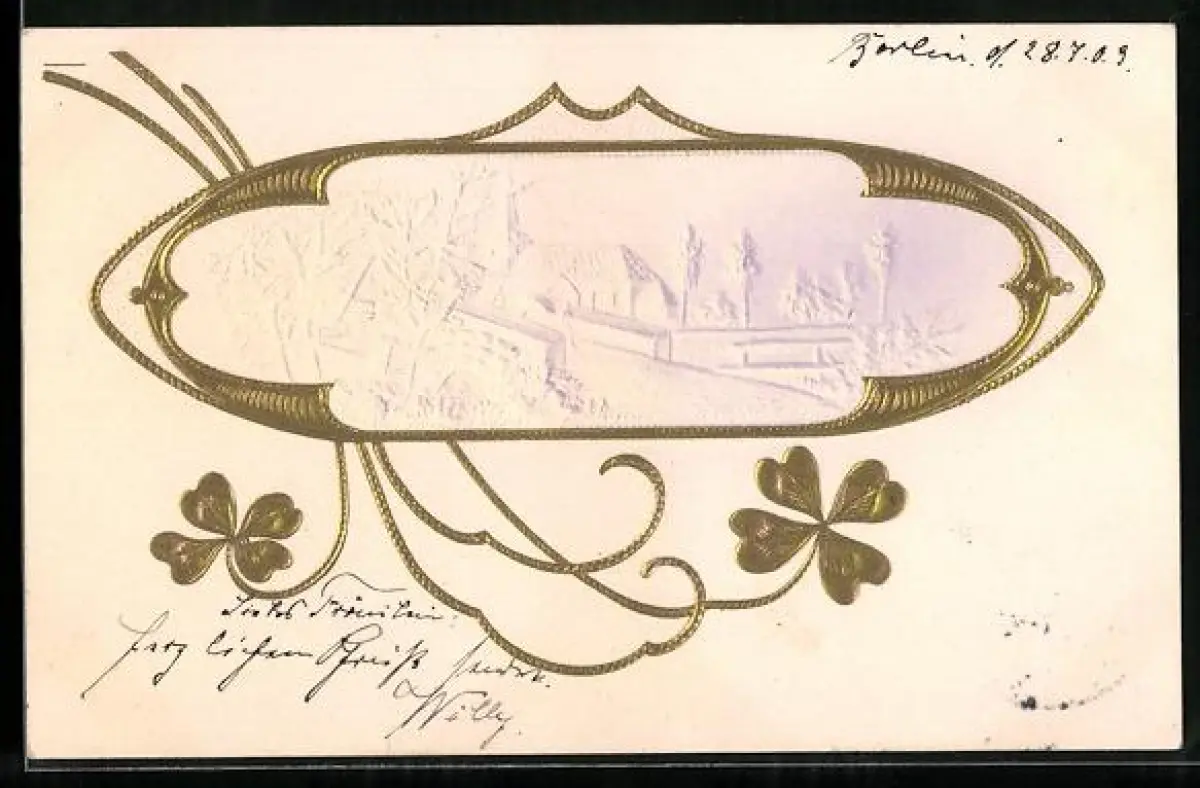 Berlin. d. 28.7.03.
Liebes Fräulein.
herzlichen Gruß sendet.
Willy.